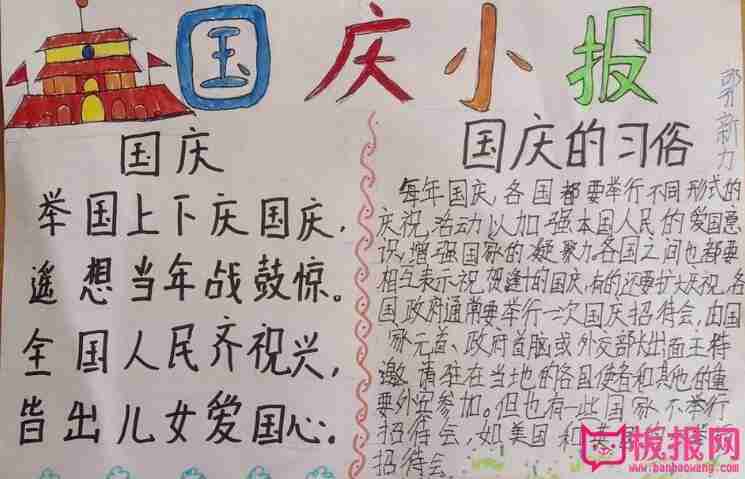 国庆小报
郭新力
国庆
举国上下庆国庆，
遥想当年战鼓惊。
全国人民齐祝兴，
皆出儿女爱国心。
国庆的习俗
每年国庆，各国都要举行不同形式的
庆祝活动，以加强本国人民的爱国意
识，增强国家的凝聚力。各国之间也都要
相互表示祝贺逢十的国庆，有的还要扩大庆祝，各
国政府通常要举行一次国庆招待会，由国
家元首、政府首脑或外交部长出面主持
邀请驻在当地的各国使者和其他的重
要外宾参加。但也有一些国家不举行
招待会，如美国和英
招待会
板报网
www.banbaowang.com